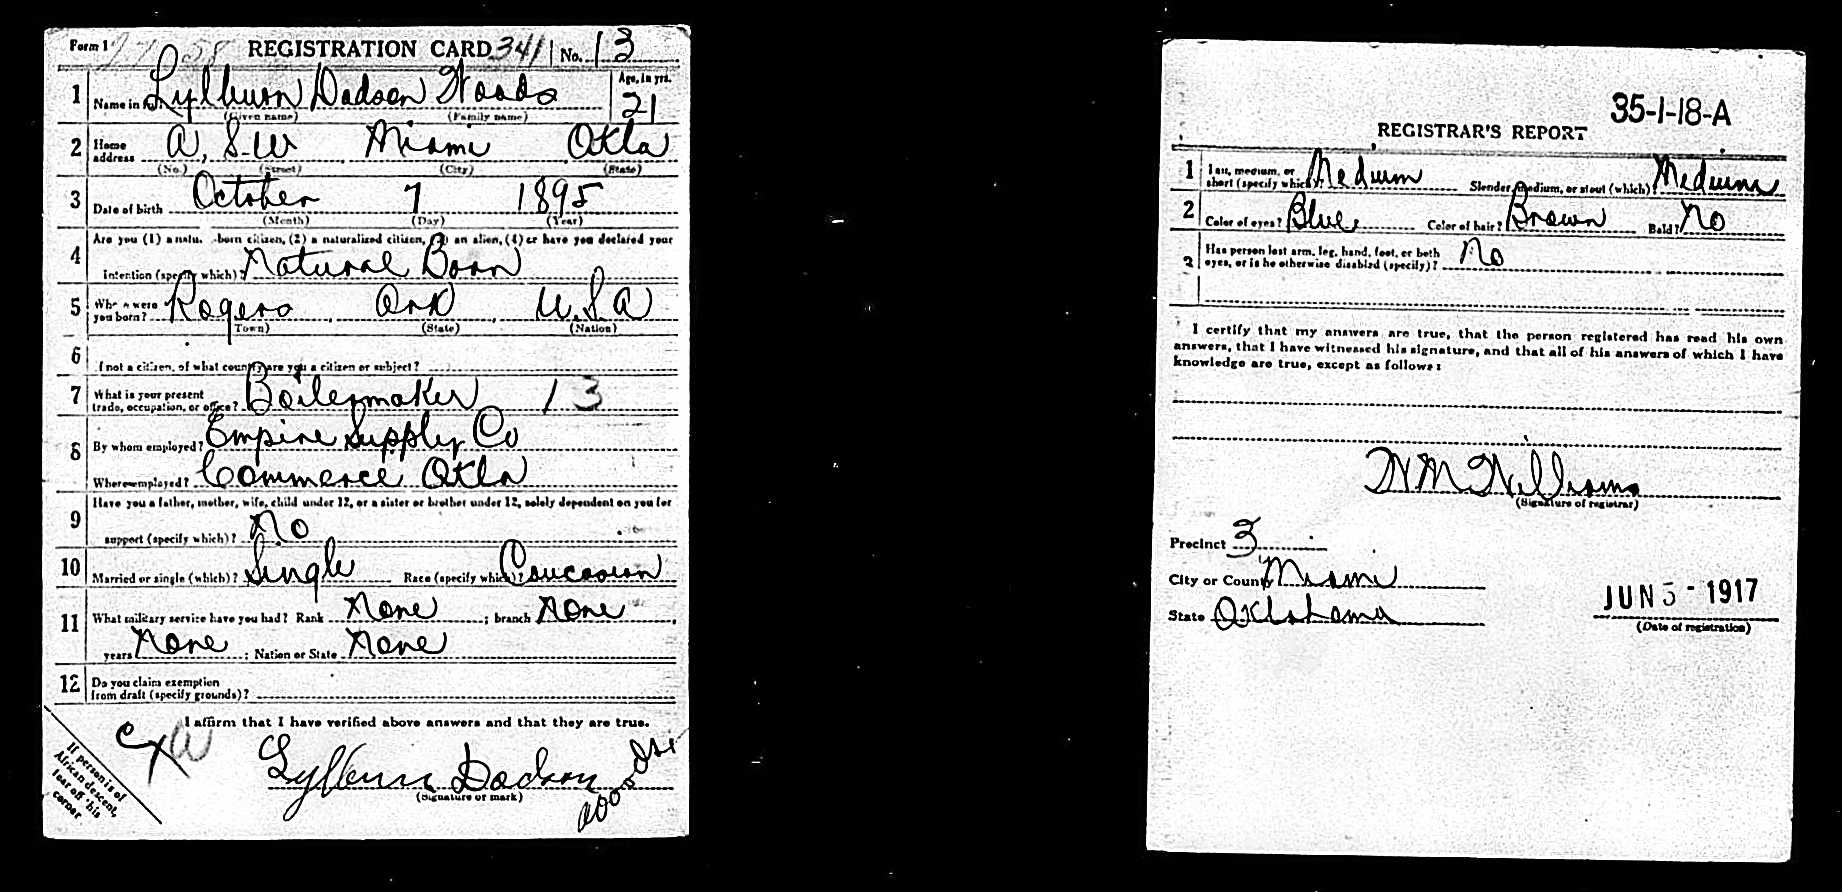 Form 1 REGISTRATION CARD 341 No. 13
1 Name in full Lylburn Dodson Woods Age, in yrs. 21
(Given name) (Family name)
2 Home address A, S.W Miami Okla
(No.) (Street) (City) (State)
3 Date of birth October 7 1895
(Month) (Day) (Year)
4 Are you (1) a natural-born citizen, (2) a naturalized citizen, (3) an alien, (4) or have you declared your
intention (specify which)? Natural Born
5 Where were you born? Rogers Ark U.S.A
(Town) (State) (Nation)
6 If not a citizen, of what country are you a citizen or subject?
7 What is your present trade, occupation, or office? Boilermaker 13
8 By whom employed? Empire Supply Co
Where employed? Commerce Okla
9 Have you a father, mother, wife, child under 12, or a sister or brother under 12, solely dependent on you for
support (specify which)? No
10 Married or single (which)? Single Race (specify which)? Caucasian
11 What military service have you had? Rank None ; branch None
years None ; Nation or State None
12 Do you claim exemption
from draft (specify grounds)?
I affirm that I have verified above answers and that they are true.
Lylburn Dodson Woods
(Signature or mark)
If person is of
African descent,
tear off this
corner
35-1-18-A
REGISTRAR'S REPORT
1 Tall, medium, or short (specify which)? Medium Slender, medium, or stout (which)? Medium
2 Color of eyes? Blue Color of hair? Brown Bald? No
3 Has person lost arm, leg, hand, foot, or both
eyes, or is he otherwise disabled (specify)? No
I certify that my answers are true, that the person registered has read his own
answers, that I have witnessed his signature, and that all of his answers of which I have
knowledge are true, except as follows:
W M Williams
(Signature of registrar)
Precinct 3
City or County Miami
State Oklahoma
JUN 5 - 1917
(Date of registration)